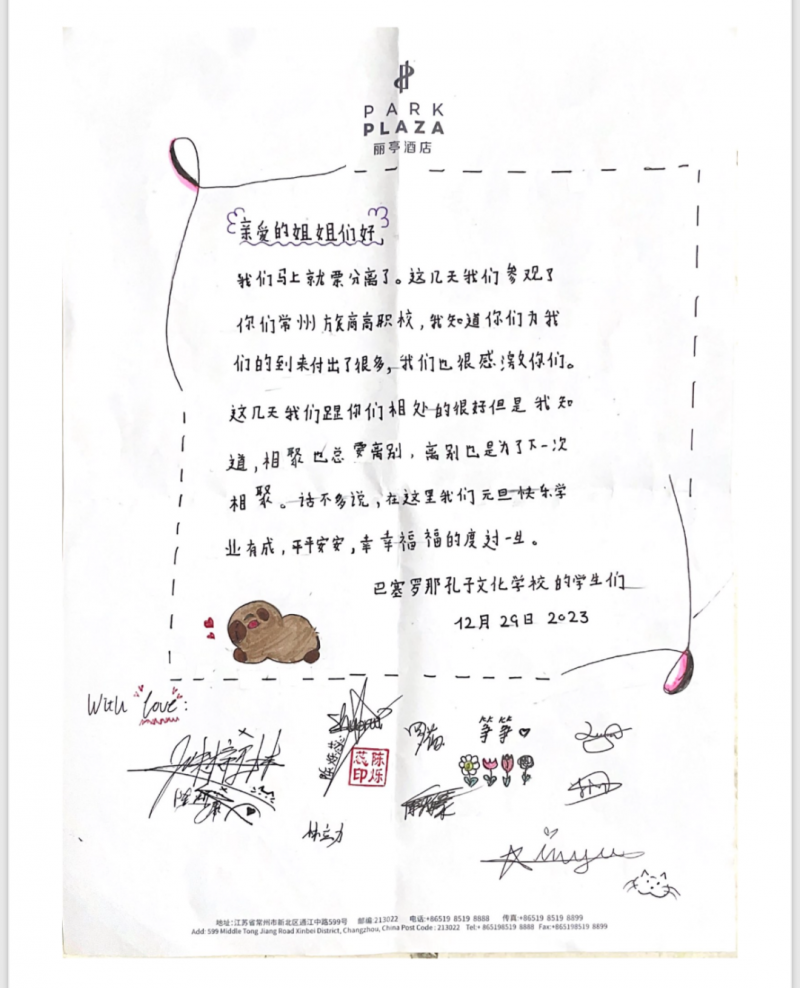 PARK
PLAZA
丽亭酒店
亲爱的姐姐们好,
我们马上就票分离了。这几天我们参观了
你们常州旅商高职校,我知道你们为我
们的到来付出了很多,我们也很感激你们。
这几天我们跟你们相处的很好但是我知
道,相聚也总要离别,离别也是为了下一次
相聚。话不多说,在这里我们元旦快乐学
业有成,平平安安,幸幸福福的度过一生。
巴塞罗那孔子文化学校的学生们
12月29日 2023
With love:
陈烁蕊
陈烁
蕊印
筝筝
林立力
Xinyu
地址:江苏省常州市新北区通江中路599号 邮编 213022 电话:+86519 8519 8888 传真:+86519 8519 8899
Add: 599 Middle Tong Jiang Road Xinbei District, Changzhou, China Post Code : 213022 Tel:+ 865198519 8888 Fax:+865198519 8899